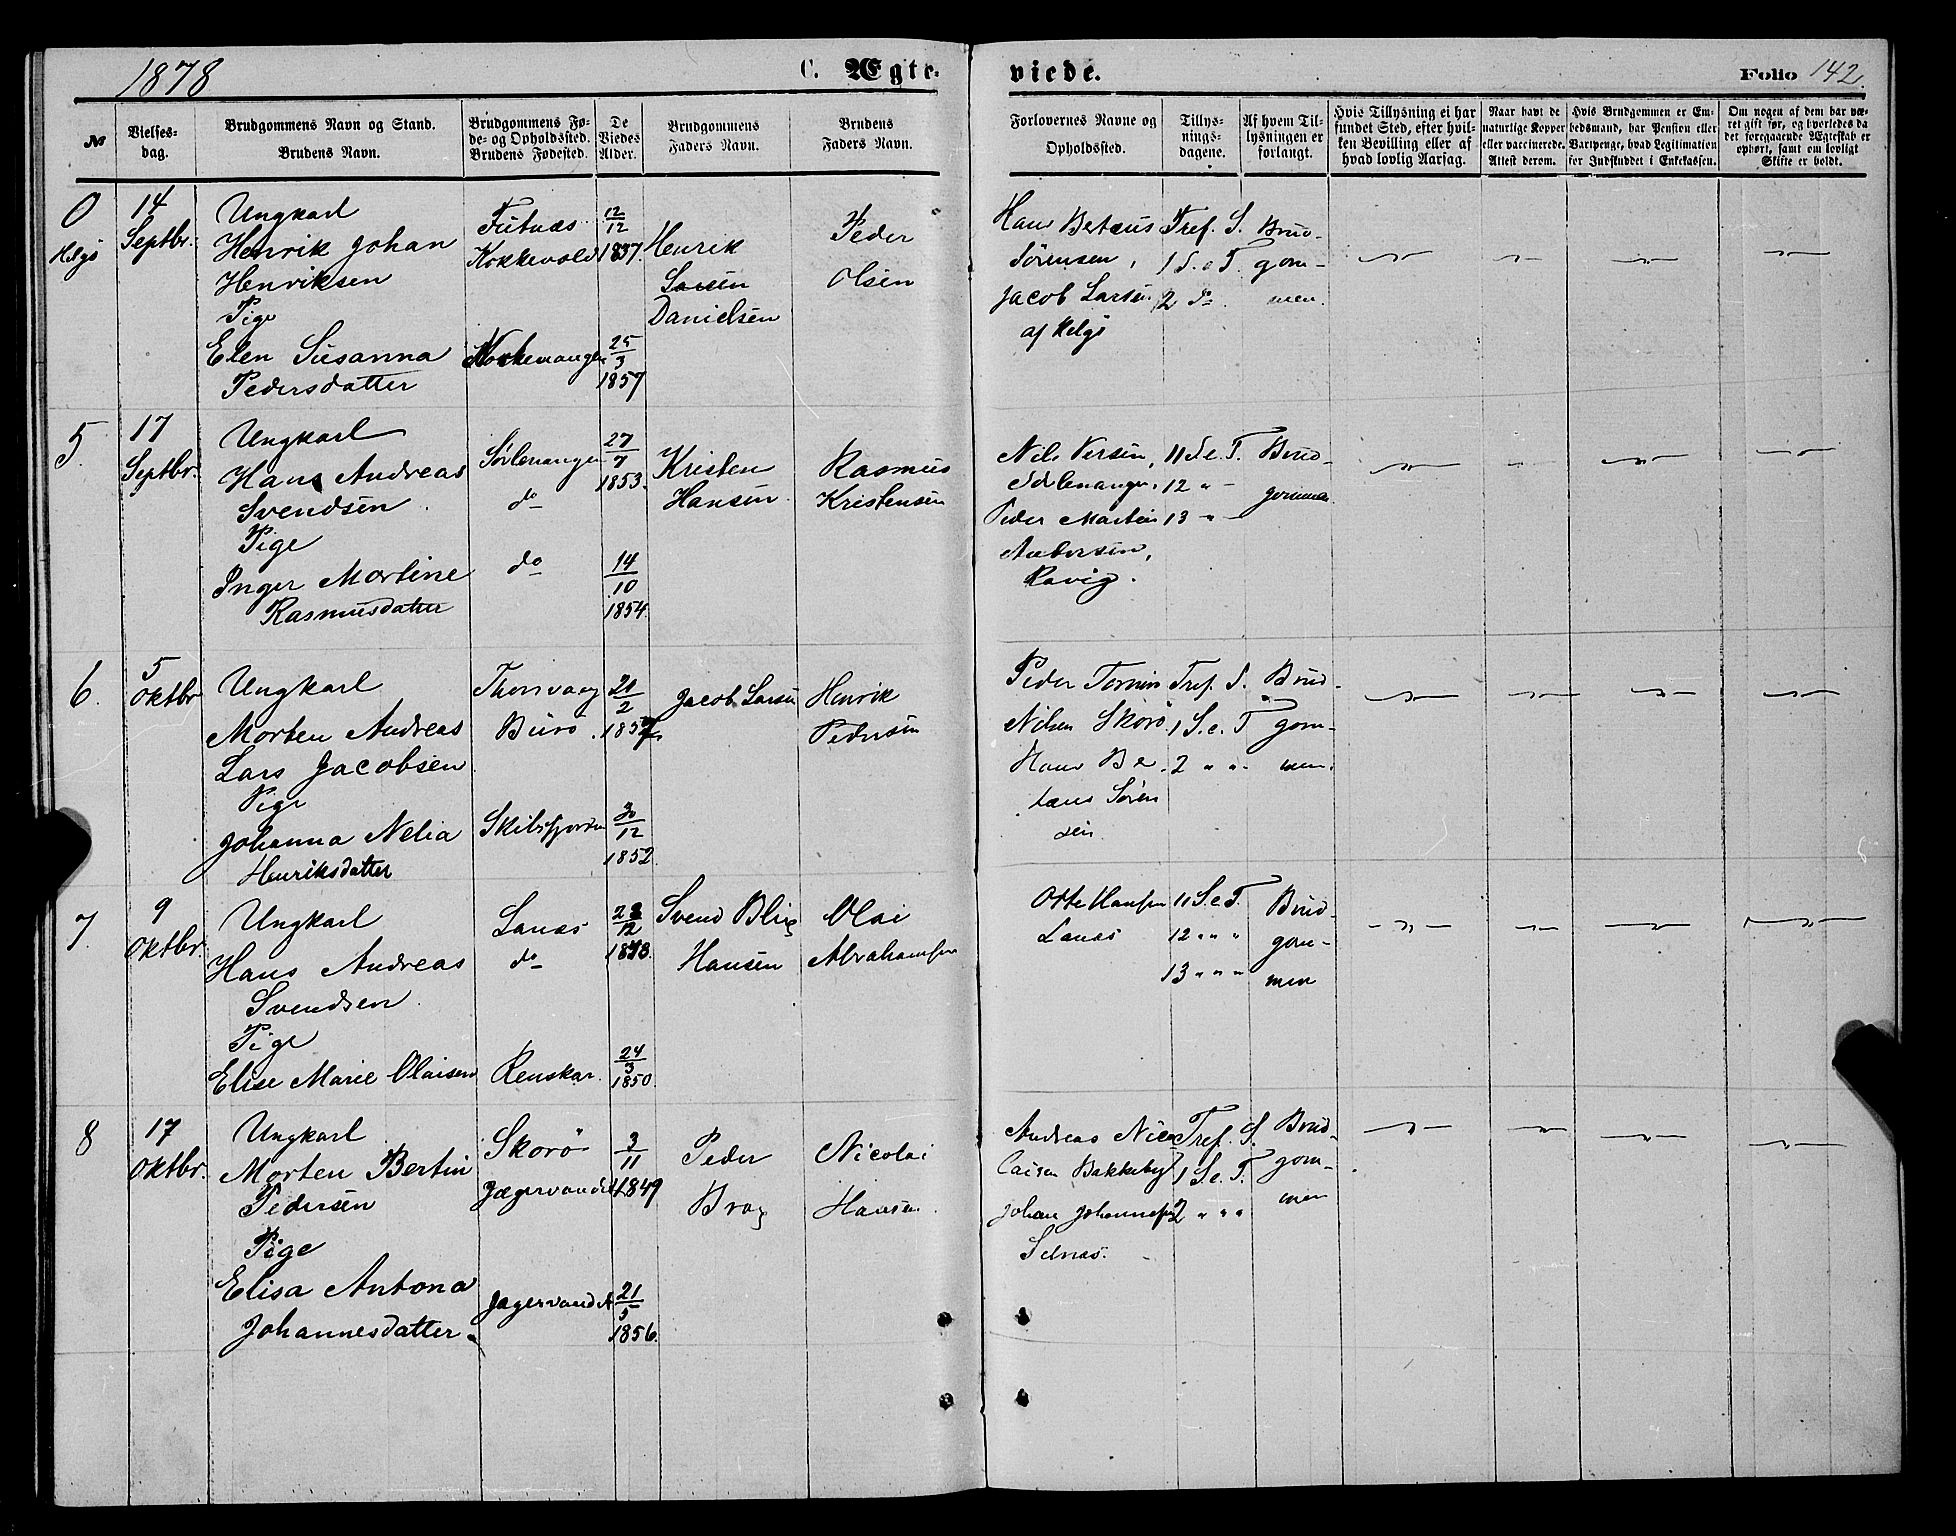 1878
C. Ægte-
viede.
Folio 142.
No
Vielses-
dag.
Brudgommens Navn og Stand.
Brudens Navn.
Brudgommens Fø-
de- og Opholdssted.
Brudens Fødested.
De
Viedes
Alder.
Brudgommens
Faders Navn.
Brudens
Faders Navn.
Forlovernes Navne og
Opholdssted.
Tillys-
nings-
dagene.
Af hvem Til-
lysningen er
forlangt.
Hvis Tillysning ei har
fundet Sted, efter hvil-
ken Bevilling eller af
hvad lovlig Aarsag.
Naar havt de
naturlige Kopper
eller vaccinerede.
Attest derom.
Hvis Brudgommen er Em-
bedsmand, har Pension eller
Vartpenge, hvad Legitimation
for Indskuddet i Enkekassen.
Om nogen af dem har væ-
ret gift før, og hvorledes da
det foregaaende Ægteskab er
ophørt, samt om lovligt
Skifte er holdt.
0
Helgø
14
Septbr.
Ungkarl
Henrik Johan
Henriksen
Pige
Elen Susanna
Pedersdatter
Futnæs
Kokkevold
12/12
1837
25/3
1857
Henrik
Larsen
Danielsen
Peder
Olsen
Hans Betæus
Sørensen,
Jacob Larsen
af Helgø
Tref. S.
1 S. e T.
2 do
Brud-
gom-
men.
5.
17
Septbr.
Ungkarl
Hans Andreas
Svendsen
Pige
Inger Martine
Rasmusdatter
Sørlenangen
do
do
27/7
1853.
14/10
1854.
Kristen
Hansen
Rasmus
Kristensen
Nils
Sørlenangen.
Peder Martin
Andersen,
11 S. e. T.
12 " -
13 " -
Brud-
gommen
6.
5
Oktbr
Ungkarl
Morten Andreas
Lars Jacobsen
Pige
Johanna Nelia
Henriksdatter
Thorsvaag
Burø
Skibsfjorden
21/2
/12
1852.
Jacob Larsen
Henrik
Pedersen
Peder
Nilsen Skorø
Hans Be-
tæus Søren
sen
Tref. S.
1 S. e. T
2 " "
Brud-
gom-
men.
7.
9
Oktbr.
Ungkarl
Hans Andreas
Svendsen
Pige
Elise Marie Olaisen
Lanæs
do
Renskar.
/12
24/3
1850.
Svend Blix
Hansen
Olai
Abrahamsen
Otte Hansen
Lanæs
11 S. e T.
12 " " "
13 " " "
Brud-
gom-
men
8
17
Oktbr.
Ungkarl
Morten Bertin
Pedersen
Pige
Elisa Antona
Johannesdatter.
Skorø
Jægervandet
Jægervandet
3/11
1849
21/5
1856.
Peder
Nicolai
Hansen
Andreas Nico-
laisen Bakkeby
Johan Johannesen
Selnæs.
Tref. S.
1 S. e. T.
2 " " "
Brud-
gom-
men